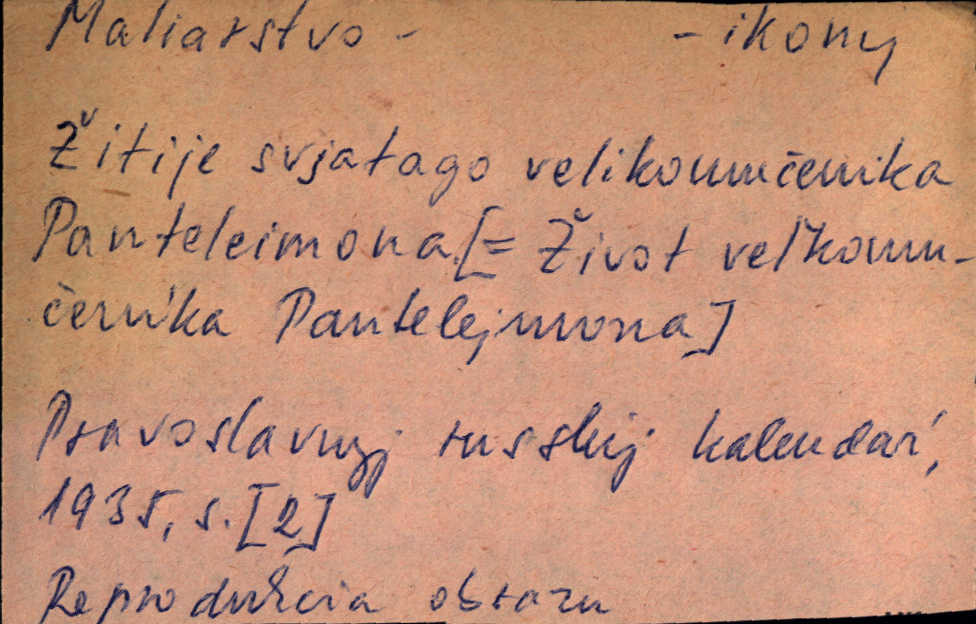 Maliarstvo - - ikony
Žitije svjatago velikomučenika
Panteleimona [= Život veľkomu-
čeníka Pantelejmona]
Pravoslavnyj russkij kalendaŕ,
1935, s. [2]
Reprodukcia obrazu